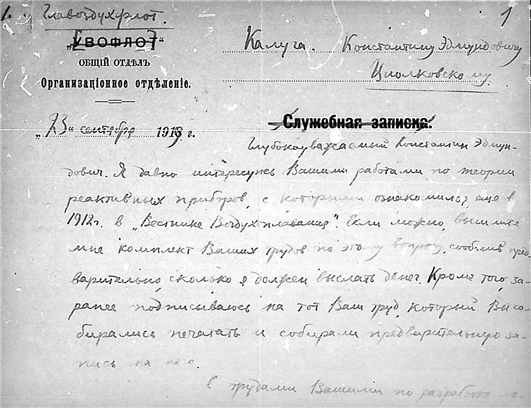 1. Главвоздухфлот. 1
„УВОФЛОТ"
ОБЩІЙ ОТДѢЛЪ
Организаціонное отдѣленіе.
Калуга. Константину Эдмундовичу
Циолковскому.
„23" сентября 1919 г.
Служебная записка.
Глубокоуважаемый Константин Эдмун-
дович. Я давно интересуюсь Вашими работами по теории
реактивных приборов, с которыми ознакомился еще в
1912г. в „Вестнике Воздухоплавания". Если можно, вышлите
мне комплект Ваших трудов по этому вопросу, сообщив пред-
варительно, сколько я должен выслать денег. Кроме того, за-
ранее подписываюсь на тот Ваш труд, который Вы со-
бирались печатать и собирали предварительную за-
пись на него.
С трудами Вашими по разработке